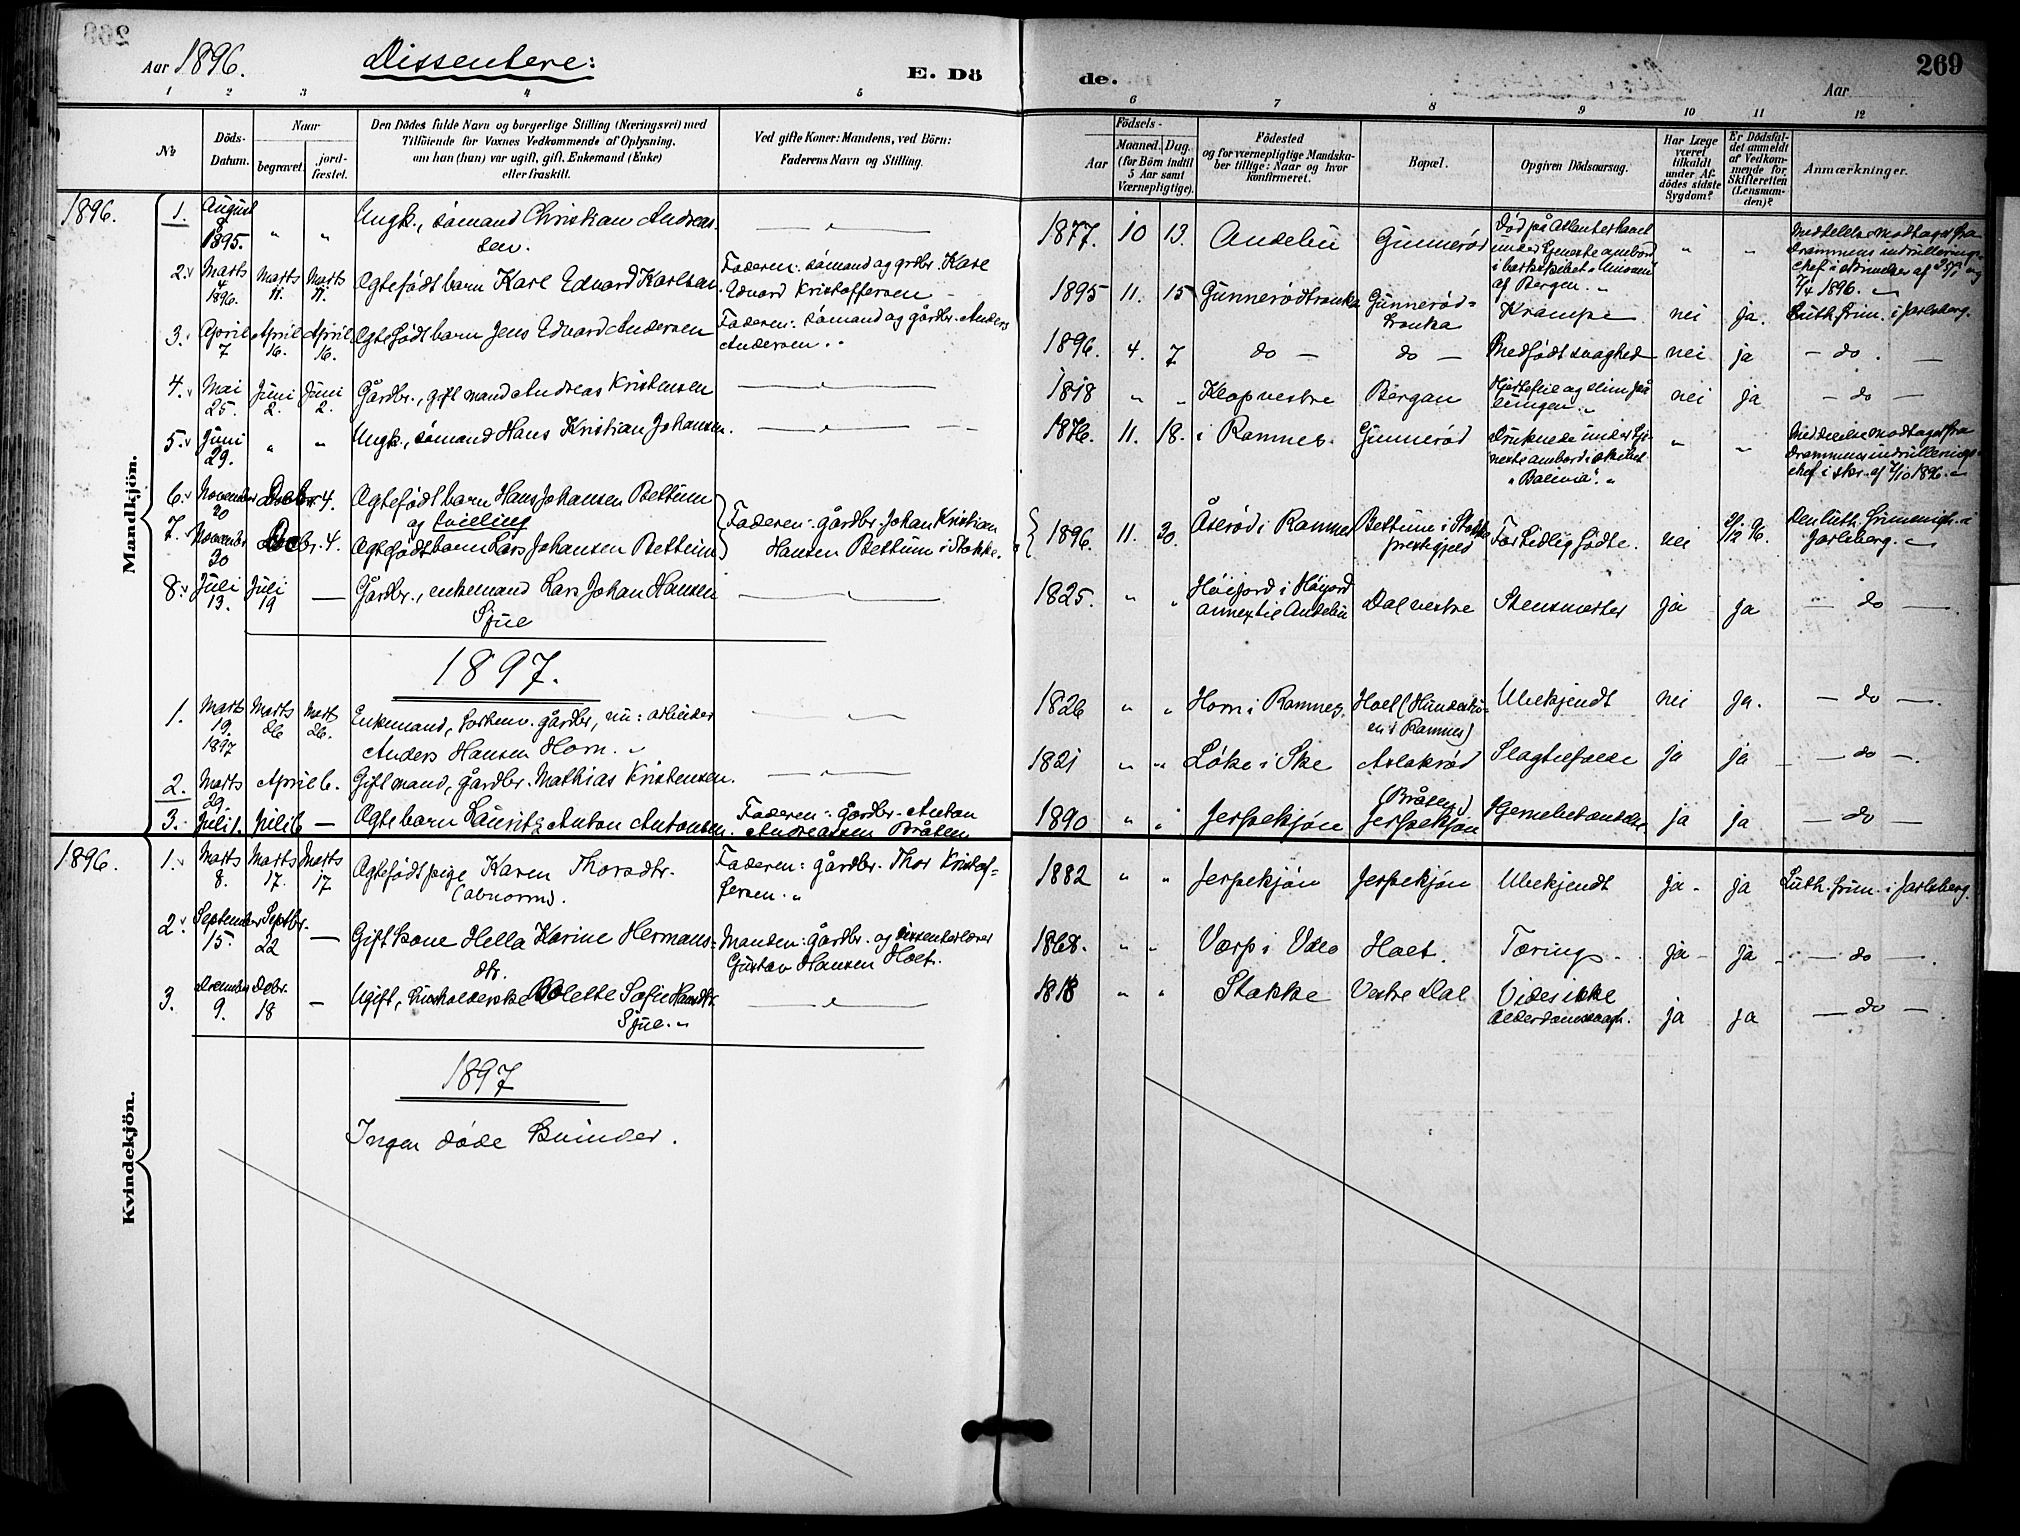 Aar 1896. Dissentere: E. Dö
1 2 3 4 5
№
Döds-
Datum.
Naar
begravet.
jord-
fæstet.
Den Dödes fulde Navn og borgerlige Stilling (Næringsvei) med
Tilföiende for Voxnes Vedkommende af Oplysning,
om han (hun) var ugift, gift, Enkemand (Enke)
eller fraskilt.
Ved gifte Koner: Mandens, ved Börn:
Faderens Navn og Stilling.
Mandkjön.
1896.
1. August 8 1895. " " Ungk., sømand Christian Andreas-
sen.
2. Marts 4 1896. Marts 11. Marts 11. Ægtefødt barn Karl Edvard Karlsen Faderen: sømand og grdbr. Karl
Edvard Kristoffersen
3. April 7 April 16. April 16. Ægtefødt barn Jens Edvard Andersen Faderen: sømand og gårdbr. Anders
Andersen.
4. Mai 25. Juni 2. Juni 2. Gårdbr., gift mand Andreas Kristensen
5. Juni 29. " " Ungk., sømand Hans Kristian Johansen.
6. November 30 Decbr. 4. Ægtefødt barn Hans Johansen Bettum
og tvilling
7. November 30 Decbr. 4. Ægtefødt barn Lars Johansen Bettum
Faderen: gårdbr. Johan Kristian
Hansen Bettum i Stokke.
8. Juli 13. Juli 19 — Gårdbr., enkemand Lars Johan Hansen
Sjue
1897.
1. Marts 19. 1897 Marts 26 Marts 26. Enkemand, forhenv. gårdbr., nu: arbeider
Anders Hansen Horn.
2. Marts 29. April 6. Gift mand, gårdbr. Mathias Kristensen.
3. Juli 1. Juli 6 — Ægte barn Lauritz Anton Antonsen. Faderen: Gårdbr. Anton
Andreassen Bråten
Kvindekjön.
1896.
1. Marts 8. Marts 17. Marts 17 Ægtefødt pige Karen Thorsdtr.
(abnorm).
Faderen: gårdbr. Thor Kristof-
fersen.
2. September 15. Septbr. 22 — Gift kone Hella Karine Hermans-
dtr.
Manden: Gårdbr. og dissenterlærer
Gustav Hansen Holt.
3. December 9. Decbr. 18 — Ugift, husholderske Olette Sofie Hansdtr.
Sjue.
1897
Ingen døde Kvinder.
de. Aar 269
6 7 8 9 10 11 12
Födsels-
Aar
Maaned. Dag.
(for Börn indtil
5 Aar samt
Værnepligtige).
Födested
og for værnepligtige Mandska-
ber tillige: Naar og hvor
konfirmeret.
Bopæl.
Opgiven Dödsaarsag.
Har Læge
været
tilkaldt
under Af-
dödes sidste
Sygdom?
Er Dödsfal-
det anmeldt
af Vedkom-
mende for
Skifteretten
(Lensman-
den)?
Anmærkninger.
1877. 10 13. Andebu Gunnerød Død på Atlanterhavet
under tjeneste ombord
i barkskibet
af Bergen. " "
Meddelelse modtaget fra
Drammens indrullerings-
chef i skrivelser af
1896.
1895 11. 15 Gunnerødtranka Gunnerød-
tranka Krampe nei ja. Luth. frim. i Jarlsberg.
1896. 4. 7 do — do — Medfødt svaghed nei ja — do. —
1818 " " Klop vestre Bergan Hjertefeil og slim på
lungen. nei ja — do —
1876. 11. 18. i Ramnes. Gunnerød Druknede under tje-
neste ombord i skibet
"Bolivia". " "
Meddelelse modtaget fra
Drammens indrullerings-
chef i skr. af 2/10 1896.
1896. 11. 30. Åserød i Ramnes Bettum i Stokke
prestegjeld For tidlig fødte. nei 21/12 96. Den luth. frimenigh. i
Jarlsberg.
1825. " " Høifjord i Høijord
annex til Andebu Dal vestre Stensmerter ja ja — do —.
1826 " " Horn i Ramnes. Holt (
i Ramnes) Ubekjendt nei ja. — do —.
1821 " " Løke i Ske Aslakrød Slagtilfælde ja ja — do —.
1890 " " Jerpekjøn (Bråten)
Jerpekjøn Hjernebetændelse ja ja — do —
1882 " " Jerpekjøn Jerpekjøn Ubekjendt ja ja Luth. frim. i Jarlsberg.
1868. " " Værp i Holt. Tæring ja ja — do —
1818 " " Stokke Vestre Dal Vides ikke
Alderdomssvagh. ja ja — do —.